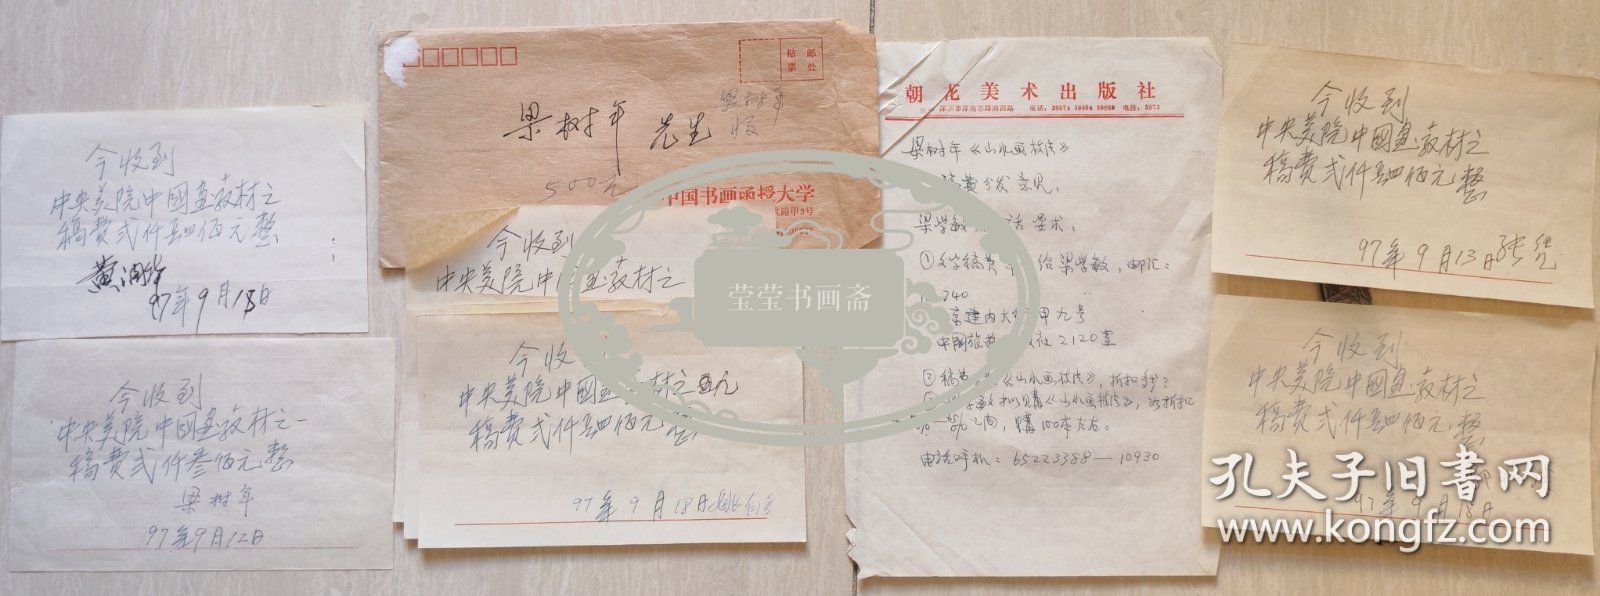 今收到
中央美院中國画教材之
稿费弍仟肆佰元整
黄润华
97年9月18日
今收到
中央美院中國画教材之
稿费弍仟叁佰元整
梁树年
97年9月12日
贴 邮
票 处
梁树年 先生
梁树年
收
500元
中国书画函授大学
今收到
中央美院中國画教材之
今收
中央美院中國画教材之
稿费弍仟肆佰元整
97年9月18日
朝花美术出版社
梁树年《山水画技法》
稿费分发意见
梁学敏 话要求：
①文字稿费 给梁学敏，邮汇：
740
建内大 甲九号
中国旅 社2120室
② 《山水画技法》，折扣
购《山水画技法》，
之间，購100本左右。
电话呼机：65223388—10930
今收到
中央美院中國画教材之
稿费弍仟肆佰元整
97年9月13日
今收到
中央美院中國画教材之
稿费弍仟肆佰元整
97年9月18日
莹莹书画斋
孔夫子旧书网
www.kongfz.com